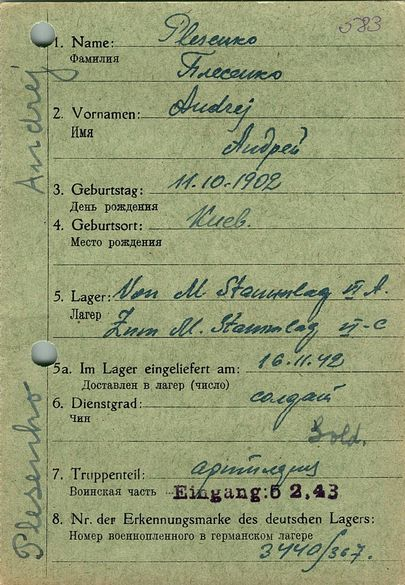 583
1. Name: Plesenko
Фамилия
Плесенко
2. Vornamen: Andrej
Имя
Андрей
3. Geburtstag: 11.10-1902
День рождения
4. Geburtsort: Киев.
Место рождения
5. Lager: Von M. Stammlag VI A.
Лагер
Zum M. Stammlag VI-C
5a. Im Lager eingeliefert am: 16.11.42
Доставлен в лагер (число)
6. Dienstgrad: солдат
Чин
Sold.
7. Truppenteil: артилерия
Воинская часть Eingang: 5 2.43
8. Nr. der Erkennungsmarke des deutschen Lagers:
Номер военнопленного в германском лагере
3440/367.
Plesenko Andrej